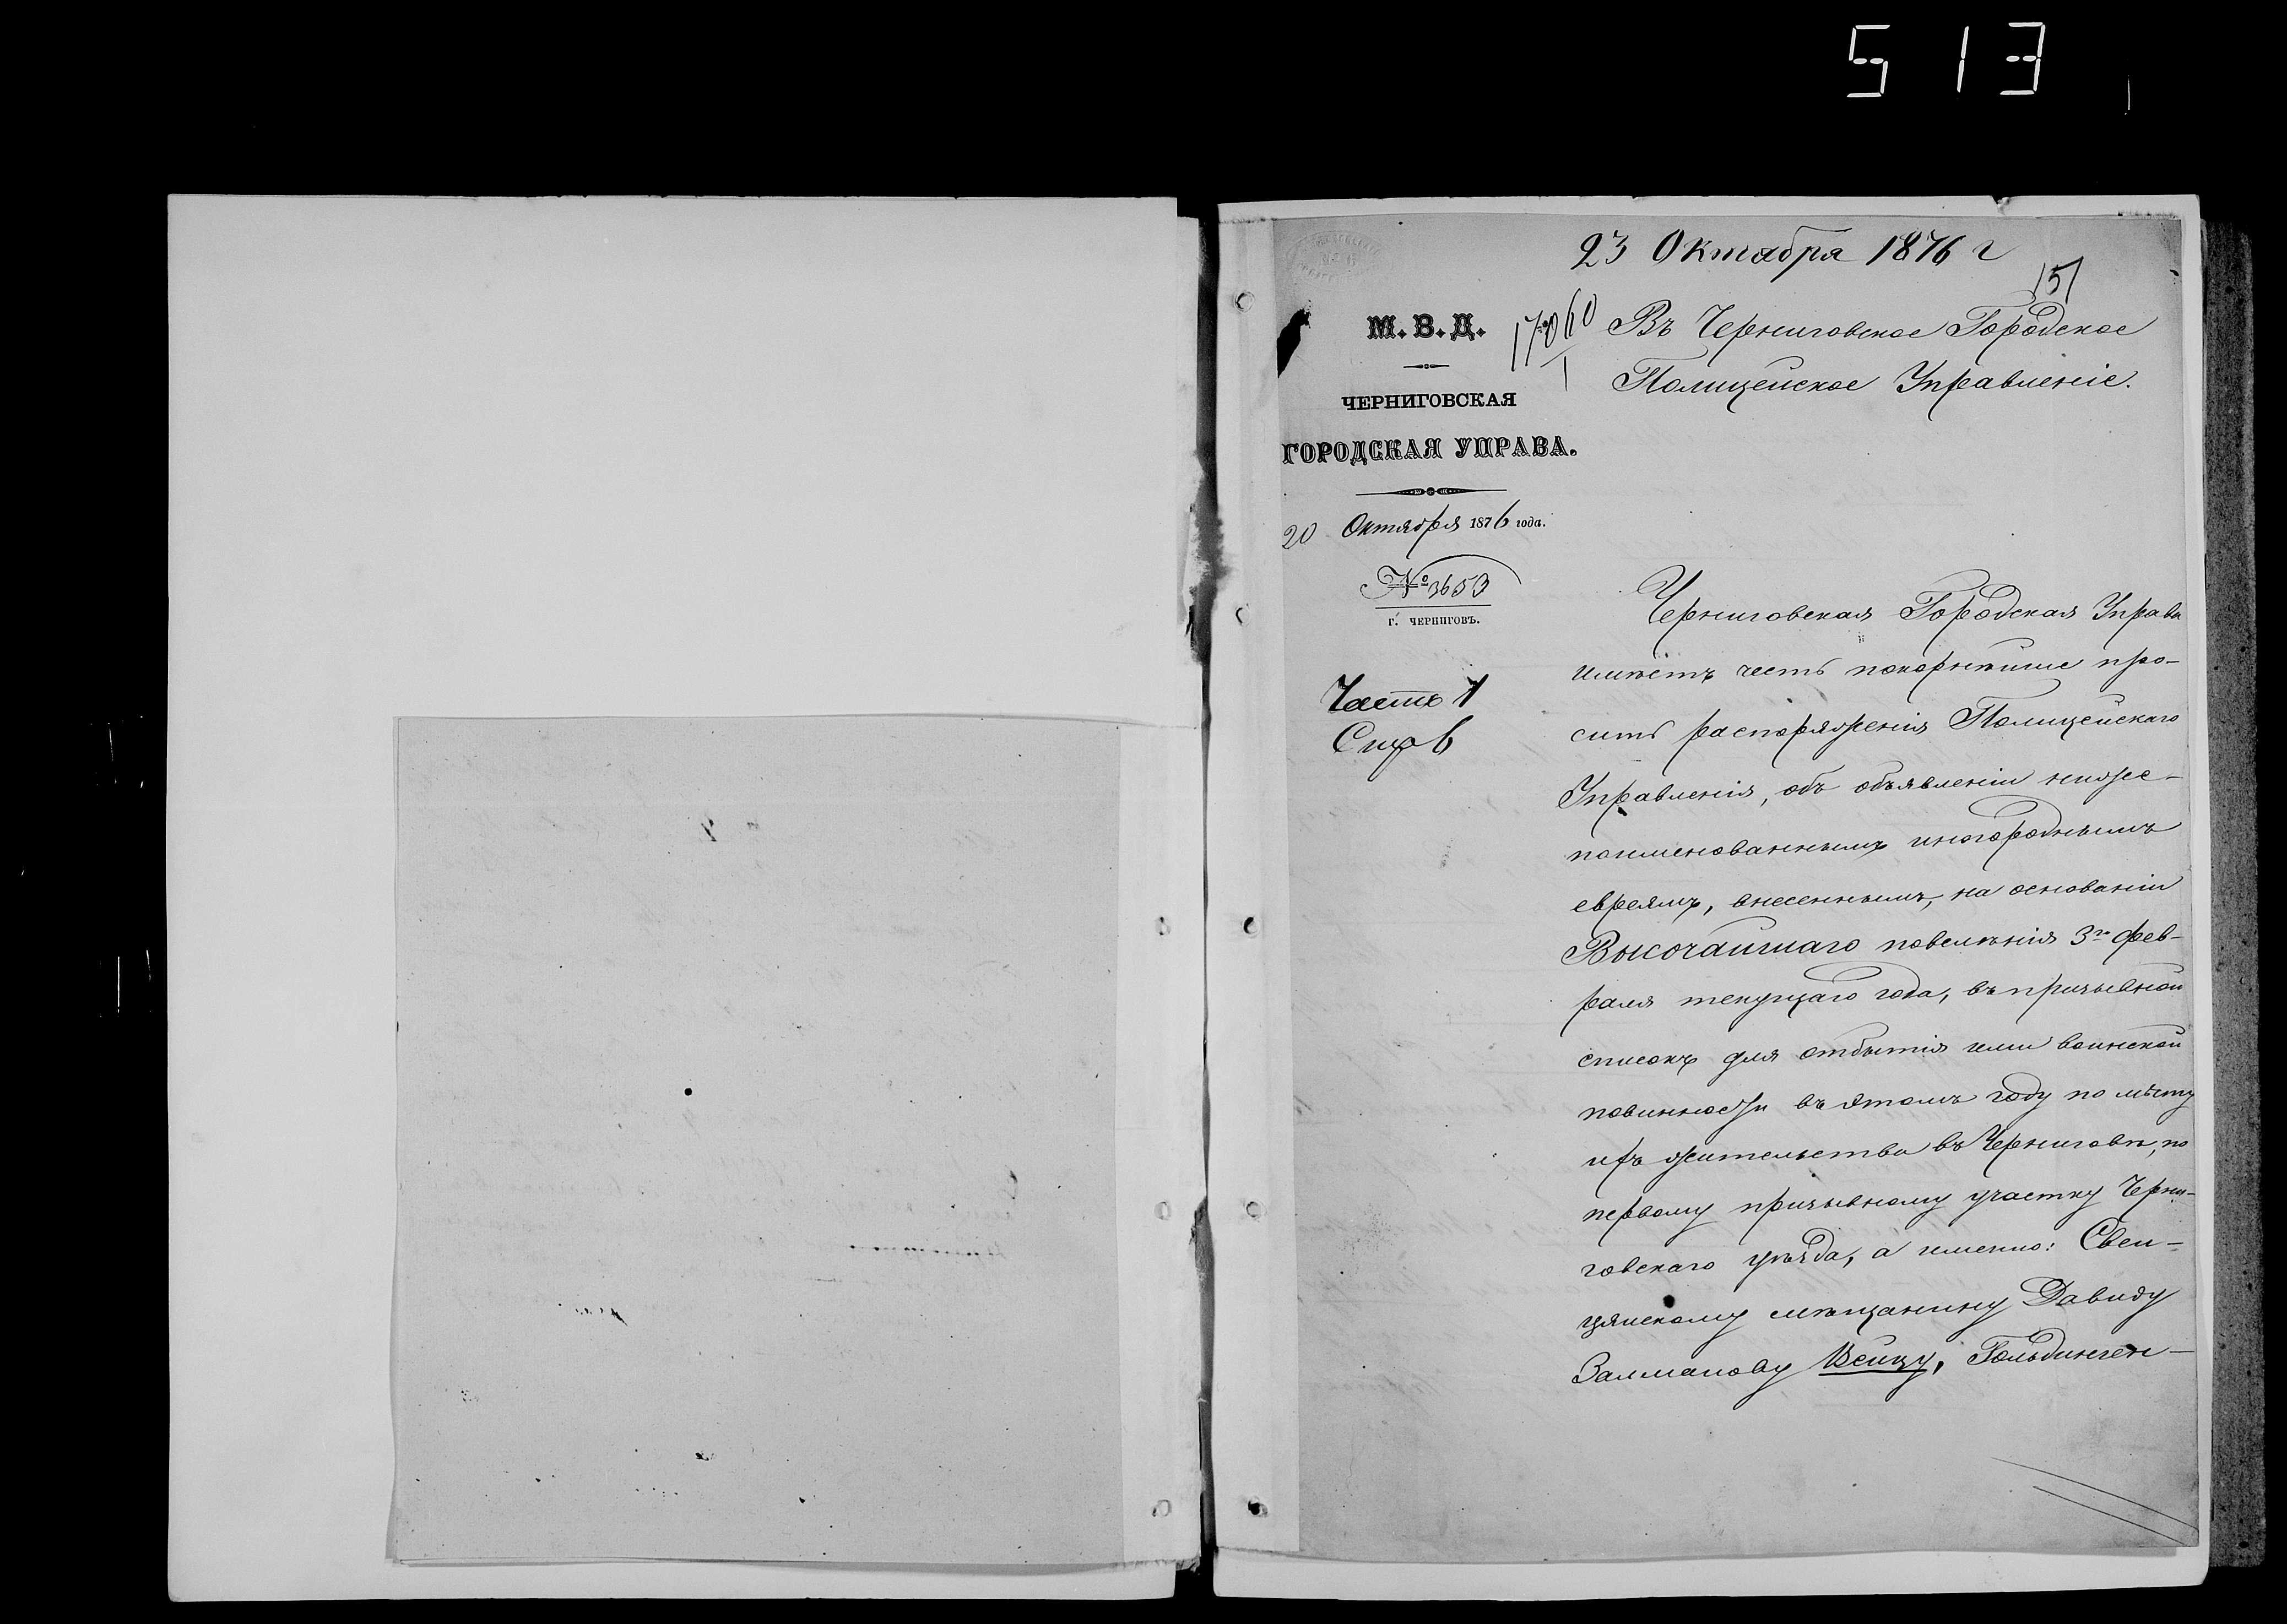 513
23 Октября 1876 г
151
М. В. Д.
17060
1
Въ Черниговское Городское
Полицейское Управленіе.
ЧЕРНИГОВСКАЯ
ГОРОДСКАЯ УПРАВА.
20 Октября 1876 года.
№ 3653
г. ЧЕРНИГОВЪ.
Часть 1
Черниговская Городская Управа
имѣетъ честь покорнѣйше про-
сить распоряженія Полицейскаго
Управленія, объ объявленіи ниже-
поименованнымъ иногороднымъ
евреямъ, внесеннымъ, на основаніи
Высочайшаго повелѣнія 3го фев-
раля текущаго года, въ призывной
списокъ для отбытія ими воинской
повинности въ этомъ году по мѣсту
ихъ жительства въ Черниговѣ, по
первому призывному участку Черни-
говскаго уѣзда, а именно: Свен-
цянскому мѣщанину Давиду
Залманову Вейцу, Гольдинген-